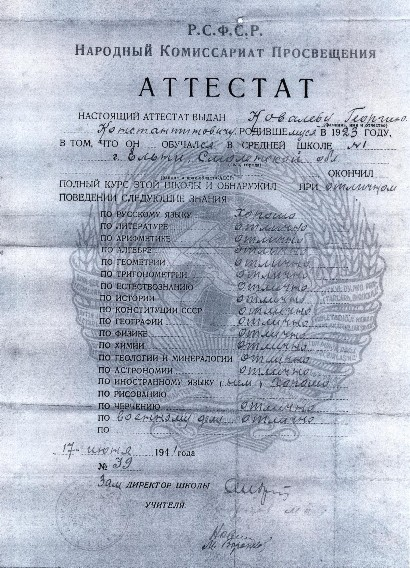 Р.С.Ф.С.Р.
НАРОДНЫЙ КОМИССАРИАТ ПРОСВЕЩЕНИЯ
АТТЕСТАТ
НАСТОЯЩИЙ АТТЕСТАТ ВЫДАН Ковалеву Георгию
Константиновичу РОДИВШЕМУСЯ В 1923 ГОДУ,
В ТОМ, ЧТО ОН ОБУЧАЛСЯ В СРЕДНЕЙ ШКОЛЕ №1
г. Ельни, Смоленской обл
ОКОНЧИЛ
ПОЛНЫЙ КУРС ЭТОЙ ШКОЛЫ И ОБНАРУЖИЛ ПРИ отличном
ПОВЕДЕНИИ СЛЕДУЮЩИЕ ЗНАНИЯ:
ПО РУССКОМУ ЯЗЫКУ хорошо
ПО ЛИТЕРАТУРЕ отлично
ПО АРИФМЕТИКЕ отлично
ПО АЛГЕБРЕ отлично
ПО ГЕОМЕТРИИ отлично
ПО ТРИГОНОМЕТРИИ отлично
ПО ЕСТЕСТВОЗНАНИЮ отлично
ПО ИСТОРИИ отлично
ПО КОНСТИТУЦИИ СССР отлично
ПО ГЕОГРАФИИ отлично
ПО ФИЗИКЕ отлично
ПО ХИМИИ отлично
ПО ГЕОЛОГИИ И МИНЕРАЛОГИИ отлично
ПО АСТРОНОМИИ отлично
ПО ИНОСТРАННОМУ ЯЗЫКУ (нем.) хорошо
ПО РИСОВАНИЮ
ПО ЧЕРЧЕНИЮ отлично
ПО военному делу отлично
ПО
17 июня 1941 года
№ 39
Зам ДИРЕКТОР ШКОЛЫ
УЧИТЕЛЯ: